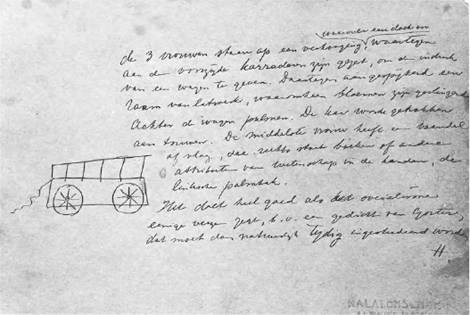 waarover een doek en
de 3 vrouwen staan op een verhooging, waartegen
aan de voorzijde karraderen zijn gezet, om de indruk
van een wagen te geven. Daartegen aan gespijkerd een
raam van latwerk, waaromheen bloemen zijn geslingerd
Achter de wagen palmen. De kar wordt getrokken
aan touwen. De middelste vrouw heeft een vaandel
of vlag, de rechts staat boeken of andere
attributen van wetenschap in de handen, de
linksche palmtak.
Het doet heel goed als
eenige verzen zegt, b.v. een gedicht van Gorter,
dat moet dan natuurlijk tijdig ingestudeerd word
H.
NALATENSCHAP